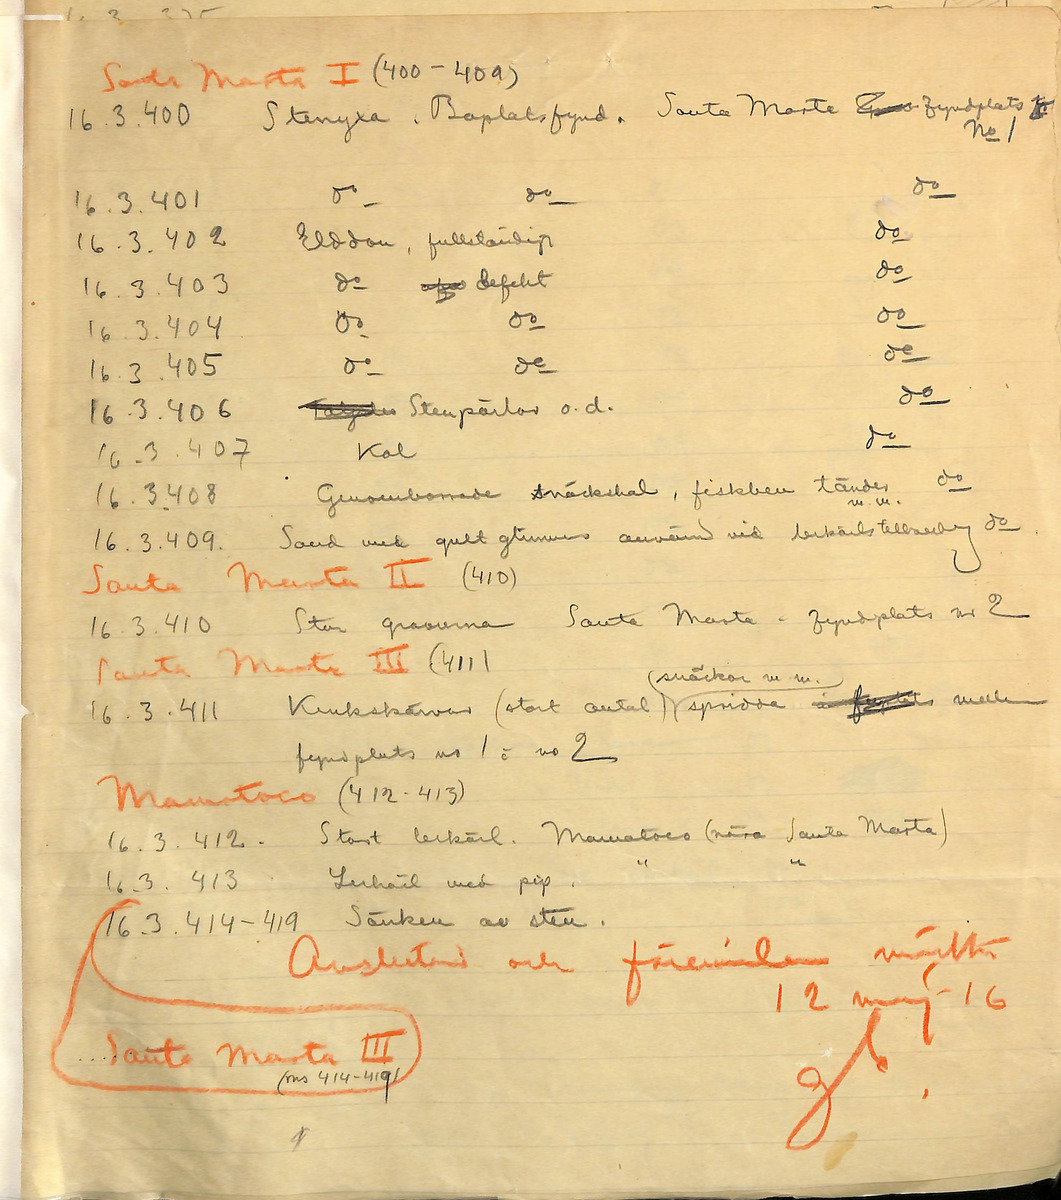 Santa Marta I (400-409)
16.3.400 Stenyxa. Boplatsfynd. Santa Marta fyndplats
No 1
16.3.401 do do do
16.3.402 Elddon, fullständigt do
16.3.403 do defekt do
16.3.404 do do do
16.3.405 do do do
16.3.406 Stenpärlor o.d. do
16.3.407 Kol do
16.3.408 Genomborrade snäckskal, fiskben tänder do
m.m.
16.3.409. Sand med gult glimmer använd vid lerkärlstillverkng do
Santa Marta II (410)
16.3.410 Stor gravurna Santa Marta - fyndplats nr 2
Santa Marta III (411)
(snäckor m.m.)
16.3.411 Krukskärvor (stort antal) spridda mellan
fyndplats no 1 o no 2
Mamatoco (412-413)
16.3.412. Stort lerkärl. Mamatoco (nära Santa Marta)
16.3.413 Lerkärl med pip. " "
16.3.414-419 Sänken av sten.
Avslutad och föremålen märkta
12 maj 16
Santa Marta III
(nos 414-419)